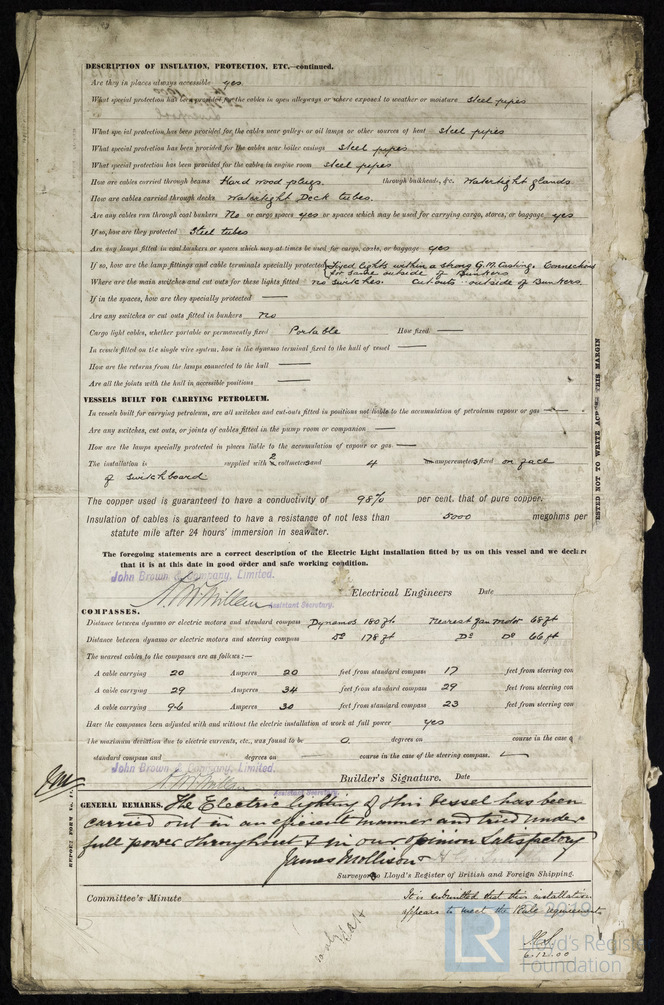 DESCRIPTION OF INSULATION, PROTECTION, ETC.—continued.
Are they in places always accessible yes
What special protection has been provided for the cables in open alleyways or where exposed to weather or moisture Steel pipes
What special protection has been provided for the cables near galleys or oil lamps or other sources of heat Steel pipes
What special protection has been provided for the cables near boiler casings Steel pipes
What special protection has been provided for the cables in engine room Steel pipes
How are cables carried through beams Hard wood plugs. through bulkheads, &c. Watertight glands
How are cables carried through decks Watertight Deck tubes.
Are any cables run through coal bunkers No or cargo spaces yes or spaces which may be used for carrying cargo, stores, or baggage yes
If so, how are they protected Steel tubes
Are any lamps fitted in coal bunkers or spaces which may at times be used for cargo, coals, or baggage yes
If so, how are the lamp fittings and cable terminals specially protected Fixed lights within a strong G.M. Casting. Connections
for same outside of Bunkers
Where are the main switches and cut outs for these lights fitted no switches. Cut outs outside of Bunkers
If in the spaces, how are they specially protected —
Are any switches or cut outs fitted in bunkers No
Cargo light cables, whether portable or permanently fixed Portable How fixed —
In vessels fitted on the single wire system, how is the dynamo terminal fixed to the hull of vessel —
How are the returns from the lamps connected to the hull —
Are all the joints with the hull in accessible positions —
VESSELS BUILT FOR CARRYING PETROLEUM.
In vessels built for carrying petroleum, are all switches and cut-outs fitted in positions not liable to the accumulation of petroleum vapour or gas —
Are any switches, cut outs, or joints of cables fitted in the pump room or companion —
How are the lamps specially protected in places liable to the accumulation of vapour or gas —
The installation is supplied with 2 voltmeters and 4 amperemeters fixed on face
of switchboard
The copper used is guaranteed to have a conductivity of 98% per cent. that of pure copper.
Insulation of cables is guaranteed to have a resistance of not less than 5000 megohms per
statute mile after 24 hours' immersion in seawater.
The foregoing statements are a correct description of the Electric Light installation fitted by us on this vessel and we declare
that it is at this date in good order and safe working condition.
John Brown & Company, Limited.
Assistant Secretary. Electrical Engineers Date
COMPASSES.
Distance between dynamo or electric motors and standard compass Dynamos 180 ft Nearest fan motor 68 ft
Distance between dynamo or electric motors and steering compass Do 178 ft Do Do 66 ft
The nearest cables to the compasses are as follows:—
A cable carrying 20 Amperes 20 feet from standard compass 17 feet from steering com
A cable carrying 29 Amperes 34 feet from standard compass 29 feet from steering com
A cable carrying 9.6 Amperes 30 feet from standard compass 23 feet from steering com
Have the compasses been adjusted with and without the electric installation at work at full power yes
The maximum deviation due to electric currents, etc., was found to be 0 degrees on course in the case o
standard compass and degrees on course in the case of the steering compass.
John Brown & Company, Limited.
Assistant Secretary. Builder's Signature. Date
GENERAL REMARKS. The Electric lighting of this Vessel has been
carried out in an efficient manner and tried under
full power throughout & in our opinion Satisfactory
James Mollison
Surveyor to Lloyd's Register of British and Foreign Shipping.
Committee's Minute
It is submitted that this installation
appears to meet the Rule requirements
6.12.00
REPORT FORM No.
THIS MARGIN
LR
Lloyd's Register
Foundation